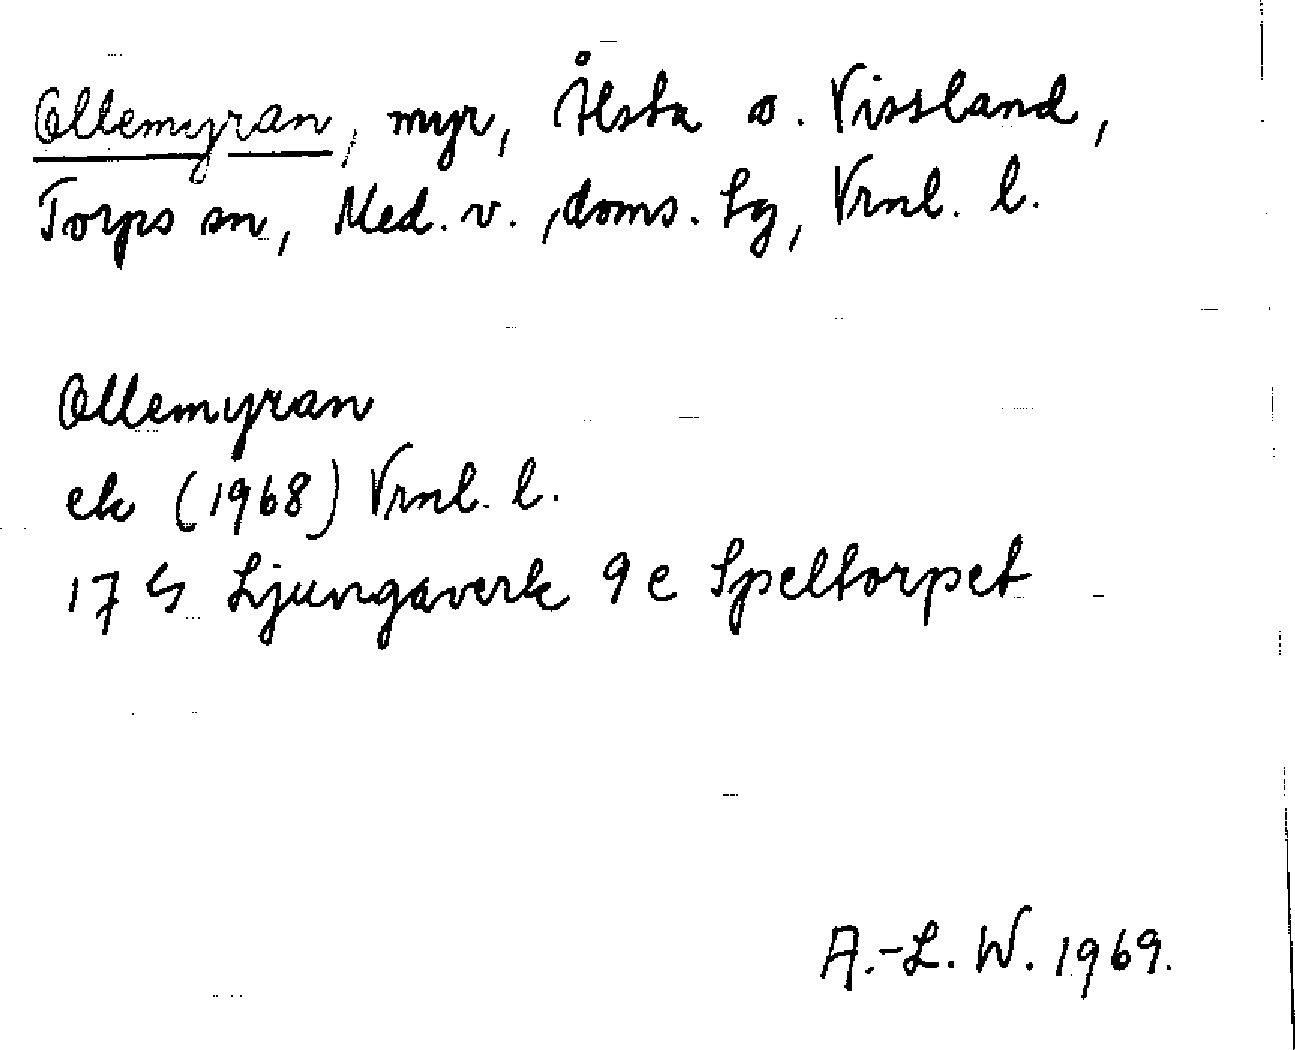 Ollemyran, myr, Ålsta o. Vissland,
Torps sn, Med. v. doms. lg, Vrnl. l.
Ollemyran
ek (1968) Vrnl. l.
17 G Ljungaverk 9 e Speltorpet
A.-L. W. 1969.